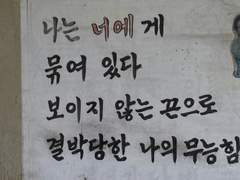 나는 너에게
묶여 있다
보이지 않는 끈으로
결박당한 나의 무능함